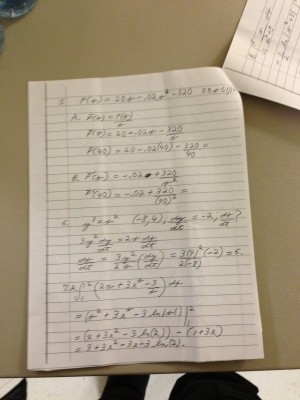 5. P(x) = 20x - .02x² - 320
A. P̄(x) = P(x)/x
P̄(x) = 20 - .02x - 320/x
P̄(40) = 20 - .02(40) - 320/40 =
B. P̄'(x) = -.02 + 320/x²
P̄'(40) = -.02 + 320/(40)² =
6. y³ = x² (-8,4), dy/dt = -2, dx/dt?
3y² dy/dt = 2x dx/dt
dx/dt = 3y²/2x (dy/dt) = 3(4)²(-2)/2(-8) = 6.
7.A. ∫₁² (2x + 3e^x - 3/x) dx
= (x² + 3e^x - 3 ln|x|) |₁²
= (4 + 3e² - 3 ln(2)) - (1 + 3e)
= 3 + 3e² - 3e - 3 ln(2).